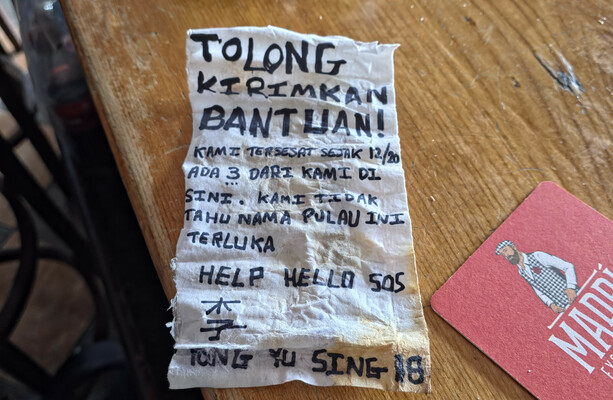 TOLONG
KIRIMKAN
BANTUAN!
KAMI TERSESAT SEJAK 12/20
ADA 3 DARI KAMI DI
SINI. KAMI TIDAK
TAHU NAMA PULAU INI
TERLUKA
HELP HELLO SOS
李
YONG YU SING 18
MADRÍ